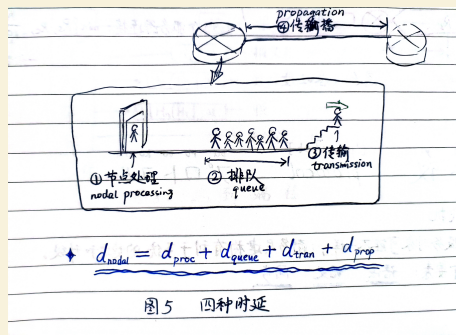 propagation
④传输播
①节点处理
nodal processing
②排队
queue
③传输
transmission
d_nodal = d_proc + d_queue + d_tran + d_prop
图5 四种时延